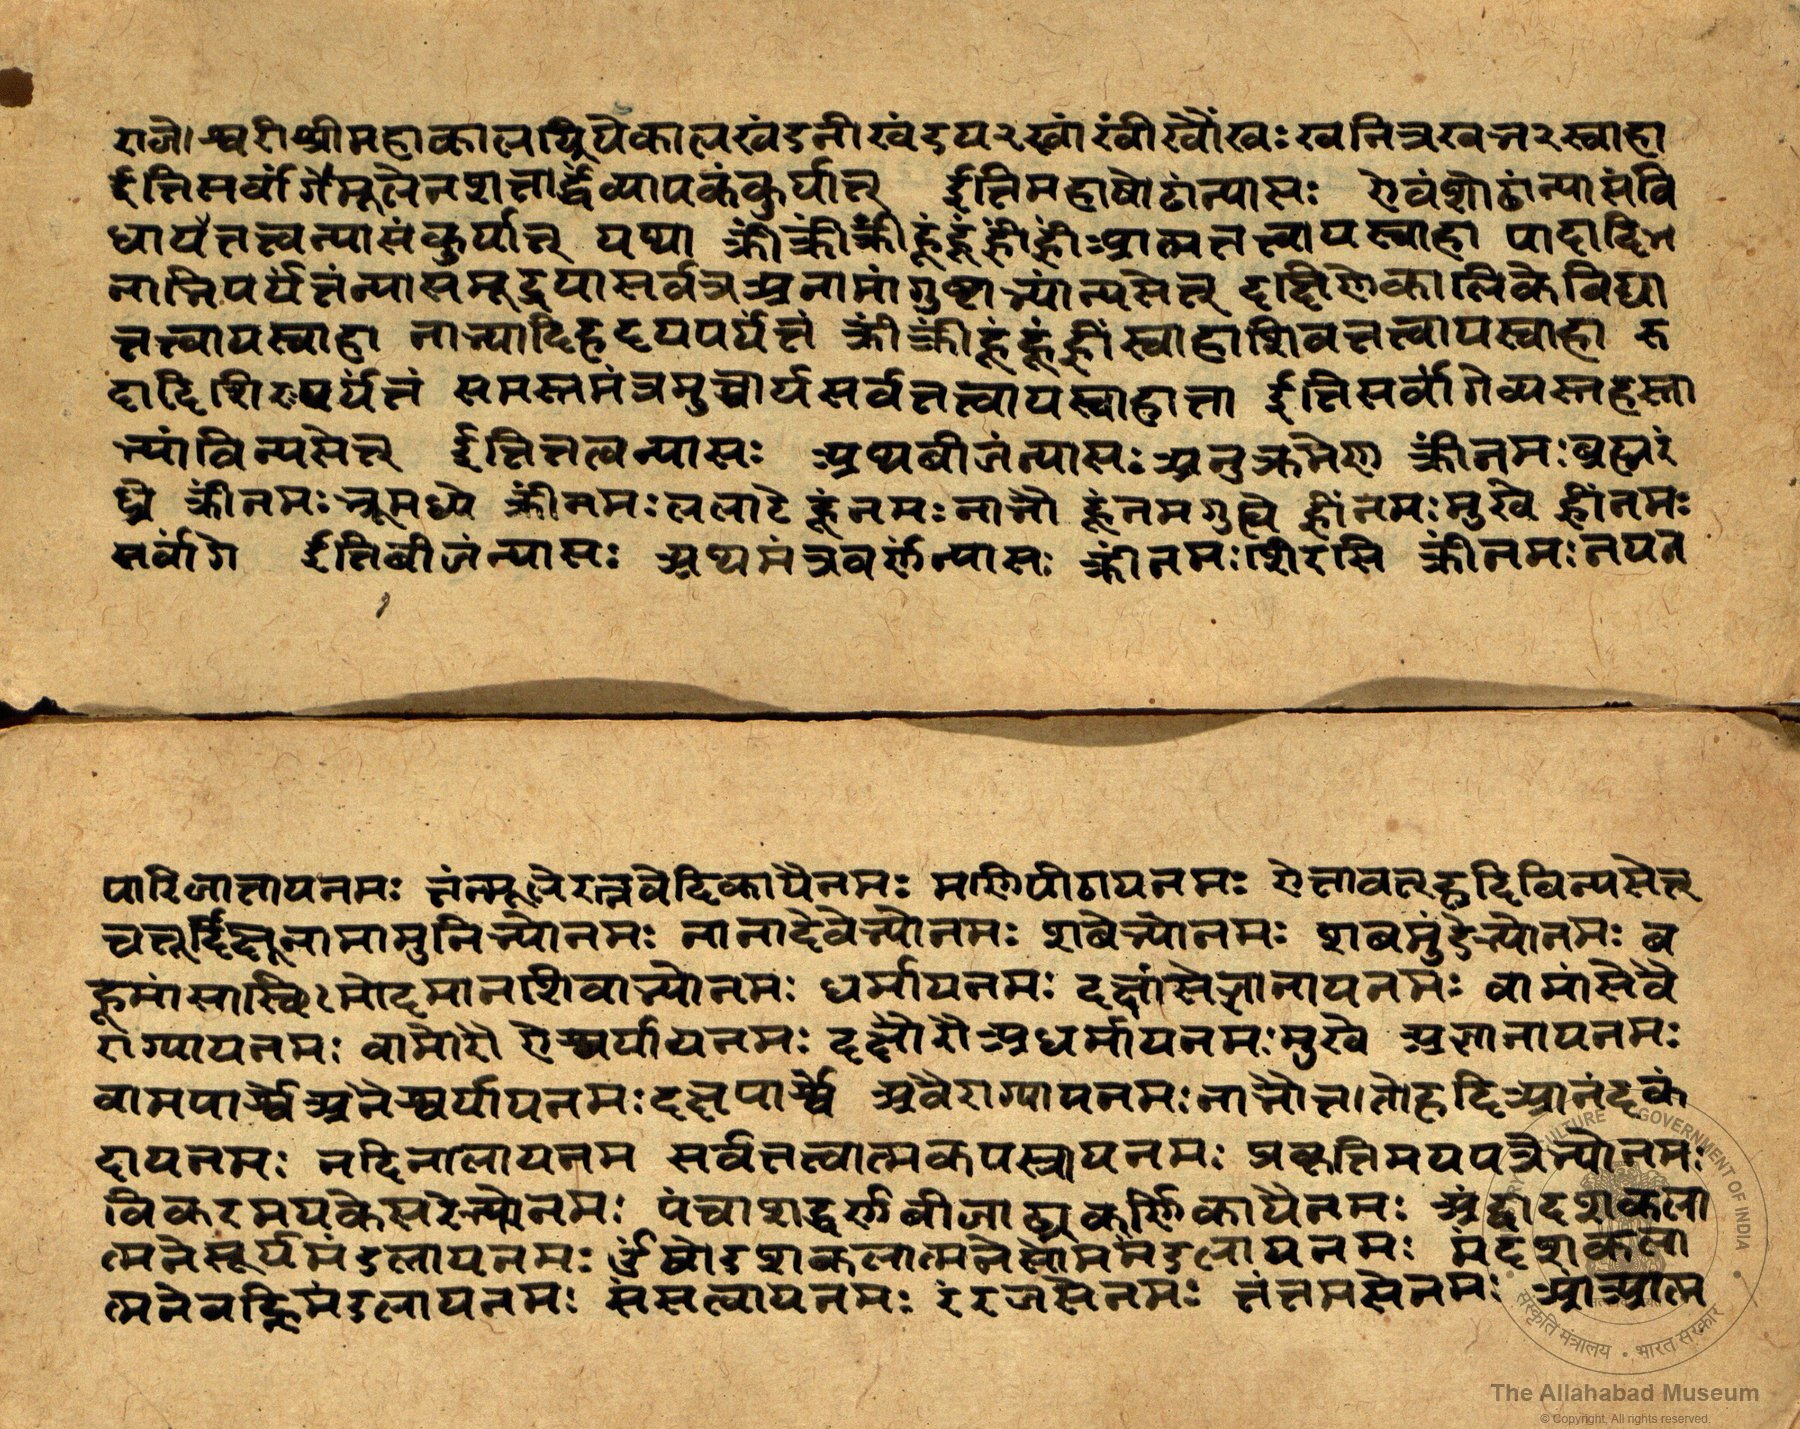 राजेश्वरीश्रीमहाकालप्रिये कालखंडनीखंडय२ खां खीं खौं खः खनित्रखन२स्वाहा
ईतिसर्वांगेमूलेनशतार्द्धेव्यापकंकुर्यात् ईतिमहाषोढांन्यासः ऐवंशोढांन्यासंवि
धायैतत्त्वन्यासंकुर्यात् यथा क्रींक्रींक्रींहूंहूंह्रींह्रींआत्मतत्त्वायस्वाहा पादादि
नाभिपर्यंतंन्यासमूद्रया सर्वत्रअनामांगुष्टाभ्यांन्यसेत् दक्षिणेकालिकेविद्या
तत्त्वायस्वाहा नाभ्यादिहृदयपर्यंतं क्रींक्रींहूंहूंह्रींस्वाहाशिवतत्त्वायस्वाहा ह
दादिशिरपर्यंतं समस्तमंत्रमुच्चार्यसर्वतत्त्वायस्वाहा ईतिसर्वांगेव्यस्तहस्ता
भ्यांविन्यसेत् ईतितत्वन्यासः अथबीजंन्यासः अनुक्रमेण क्रींनमः ब्रह्मरं
ध्रे क्रींनमः भ्रूमध्ये क्रींनमः ललाटे हूंनमः नाभौ हूंनमगुह्ये ह्रींनमः मुखे ह्रींनमः
सर्वांगे ईतिबीजंन्यासः अथमंत्रवर्णन्यासः क्रींनमः शिरसि क्रींनमः नयन
पारिजातायनमः तंन्मूलेरत्नवेदिकायैनमः मणिपीठायनमः ऐतावत्हृदिविन्यसेत्
चतूर्दिक्षूनामामुनिभ्योनमः नानादेवेभ्योनमः शवेभ्योनमः शवमुंडेभ्योनमः ब
हूमांसास्थिमोदमानशिवाभ्योनमः धर्मायनमः दक्षांसेज्ञानायनमः वामांसेवै
राग्यायनमः वामोरौ ऐश्वर्यायनमः दक्षोरौअधर्मायनमः मुखे अज्ञानायनमः
वामपार्श्वेअनैश्वर्यायनमः दक्षपार्श्वे अवैराग्यायनमः नाभौततोहृदिआनंदकं
दायनमः नदिनालायनम सर्वतत्त्वात्मकपद्मायनमः प्रकृतिमयपत्रेभ्योनमः
विकरमयकेसरेभ्योनमः पंचाशद्वर्णबीजाढ्यकर्णिकायैनमः अंद्वादशकला
त्मनेसूर्यमंडलायनमः उंषोडशकलात्मनेसोममंडलायनमः मंदशकला
त्मनेवह्निमंडलायनमः संसत्वायनमः रंरजसेनमः तंतमसेनमः आंआत्म
MINISTRY OF CULTURE • GOVERNMENT OF INDIA
संस्कृति मंत्रालय • भारत सरकार
The Allahabad Museum
© Copyright. All rights reserved.